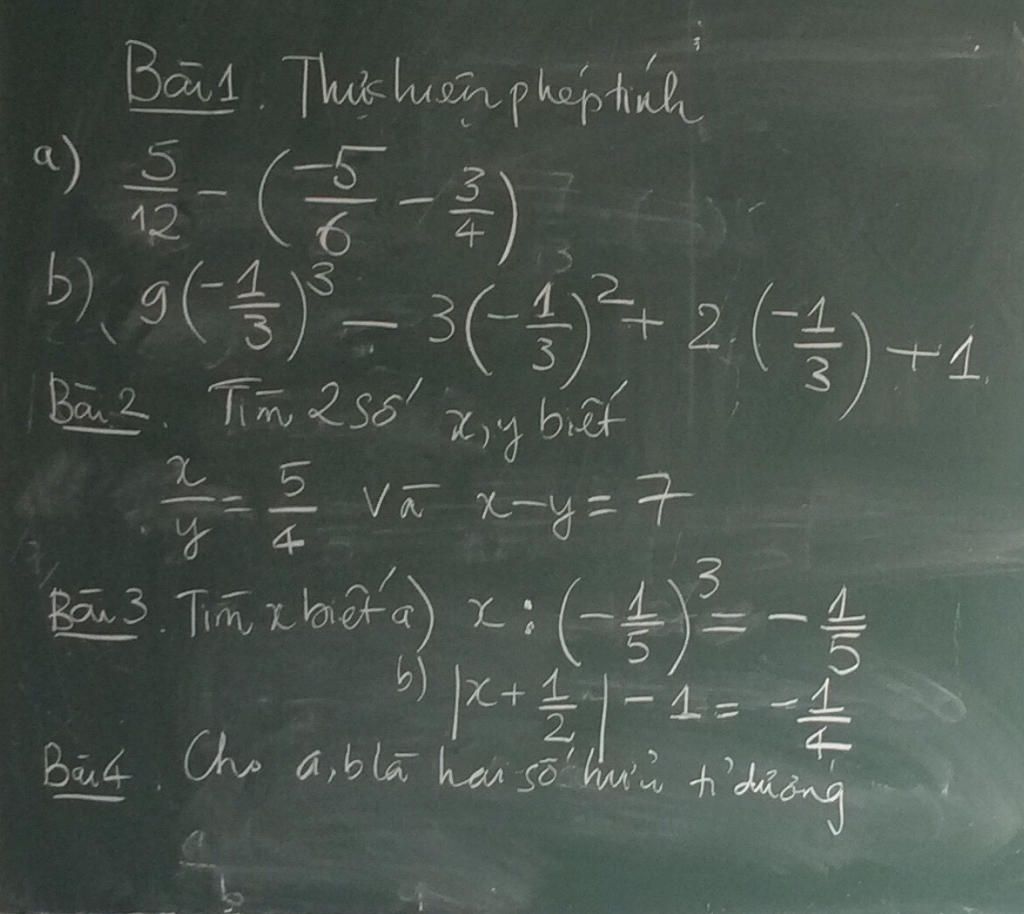 Bài 1. Thực hiện phép tính
a) 5/12 - (-5/6 - 3/4)
b) 9(-1/3)³ - 3(-1/3)² + 2.(-1/3) + 1.
Bài 2. Tìm 2 số x, y biết
x/y = 5/4 và x - y = 7
Bài 3. Tìm x biết a) x : (-1/5)³ = -1/5
b) |x + 1/2| - 1 = -1/4
Bài 4. Cho a, b là hai số hữu tỉ dương
a
b